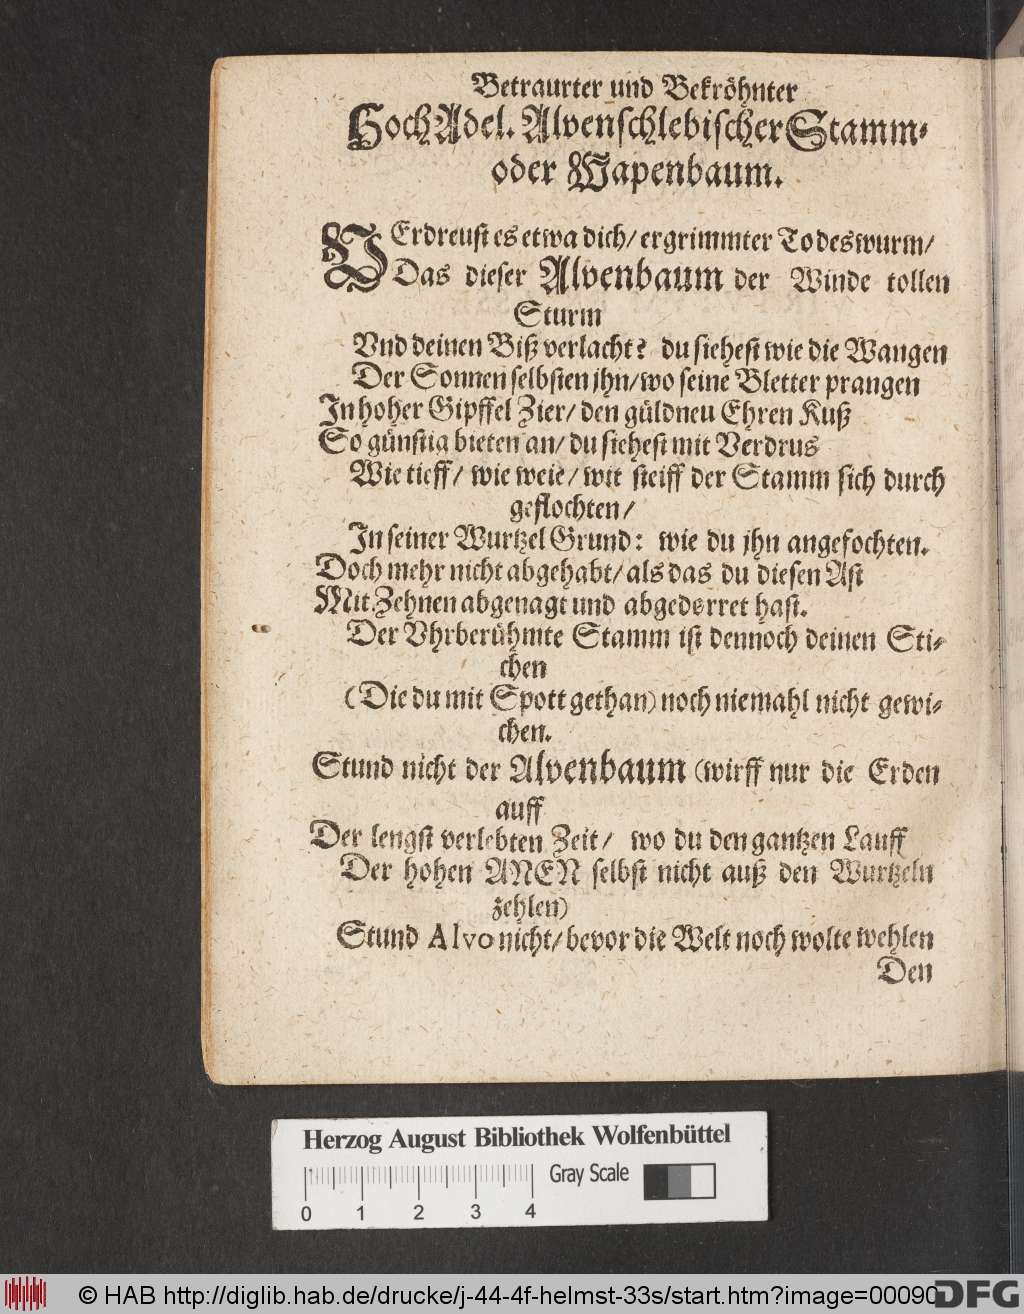 Betraurter und Bekröhnter
HochAdel. AlvenschlebischerStamm-
oder Wapenbaum.
VErdreust es etwa dich/ ergrimmter Todeswurm/
Das dieser Alvenbaum der Winde tollen
Sturm
Vnd deinen Biß verlacht? du siehest wie die Wangen
Der Sonnen selbsten jhn/ wo seine Bletter prangen
In hoher Gipffel Zier/ den güldneu Ehren Kuß
So günstig bieten an/ du siehest mit Verdrus
Wie tieff/ wie weit/ wie steiff der Stamm sich durch
geflochten/
In seiner Wurtzel Grund: wie du jhn angefochten.
Doch mehr nicht abgehabt/ als das du diesen Ast
Mit Zehnen abgenagt und abgedorret hast.
Der Vhrberühmte Stamm ist dennoch deinen Sti-
chen
(Die du mit Spott gethan) noch niemahl nicht gewi-
chen.
Stund nicht der Alvenbaum (wirff nur die Erden
auff
Der lengst verlebten Zeit/ wo du den gantzen Lauff
Der hohen ANEN selbst nicht auß den Wurtzeln
zehlen)
Stund Alvo nicht/ bevor die Welt noch wolte wehlen
Den
Herzog August Bibliothek Wolfenbüttel
Gray Scale
0 1 2 3 4
© HAB http://diglib.hab.de/drucke/j-44-4f-helmst-33s/start.htm?image=00090
DFG